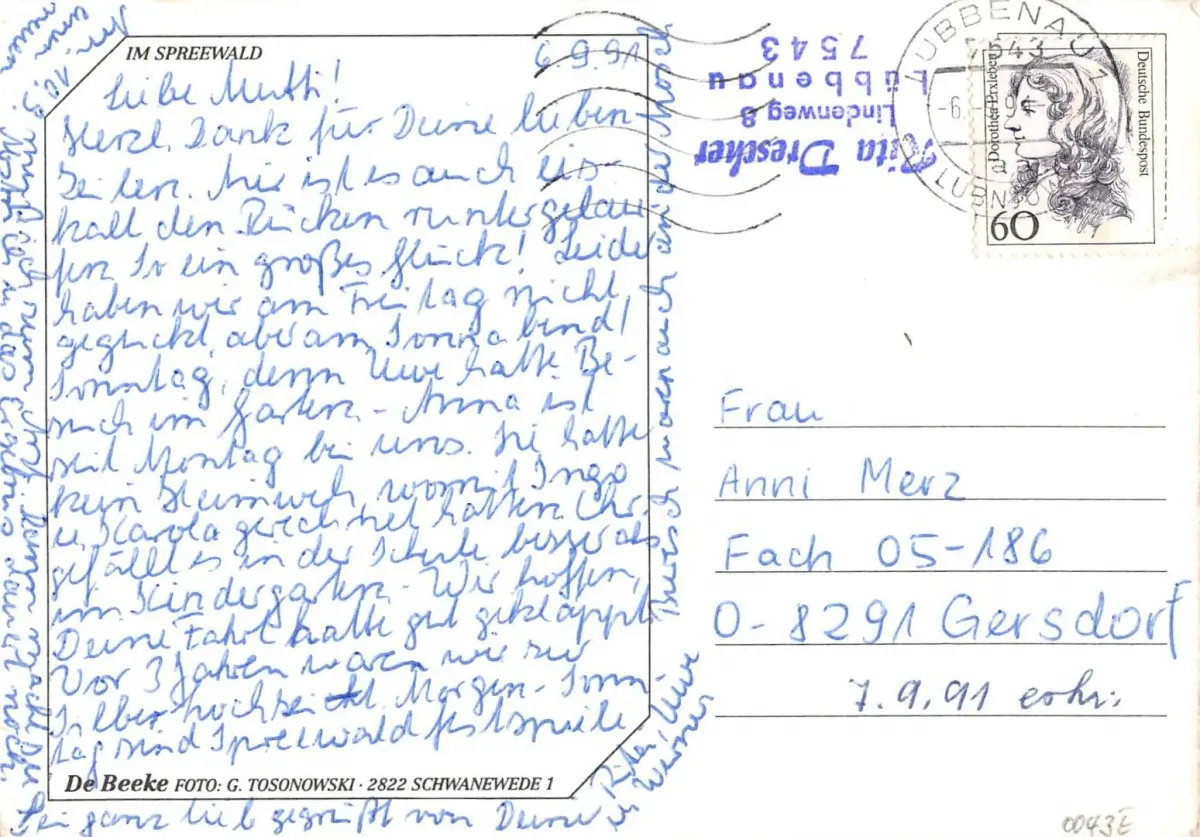 IM SPREEWALD
6.9.91
Liebe Mutti!
Herzl. Dank für Deine lieben
Zeilen. Mir ist es auch eis-
kalt den Rücken runtergelau-
fen. So ein großes Glück! Leider
haben wir am Freitag nicht
geglückt, aber am Sonnabend/
Sonntag, denn Uwe hatte Be-
such im Garten - Anna ist
seit Montag bei uns. Sie hatte
kein Heimweh, womit Ingo
u. Karola gerechnet hatten. Ihr
gefällt es in der Schule besser als
im Kindergarten. Wir hoffen,
Deine Fahrt hatte gut geklappt.
Vor 3 Jahren waren wir zur
Silberhochzeit. Morgen - Sonn-
tag sind Spreewaldfestspiele
De Beeke FOTO: G. TOSONOWSKI · 2822 SCHWANEWEDE 1
Sei ganz lieb gegrüßt von Deiner
Rita, Uwe
u. Werner
10.9. muß ich zum
das Ergebnis
waren auch an der
Rita Drescher
Lindenweg 8
Lübbenau
7543
LÜBBENAU 1
7543
-6.
Deutsche Bundespost
Dorothea Erxleben
60
Frau
Anni Merz
Fach 05-186
O-8291 Gersdorf
7.9.91 erh.
0043E